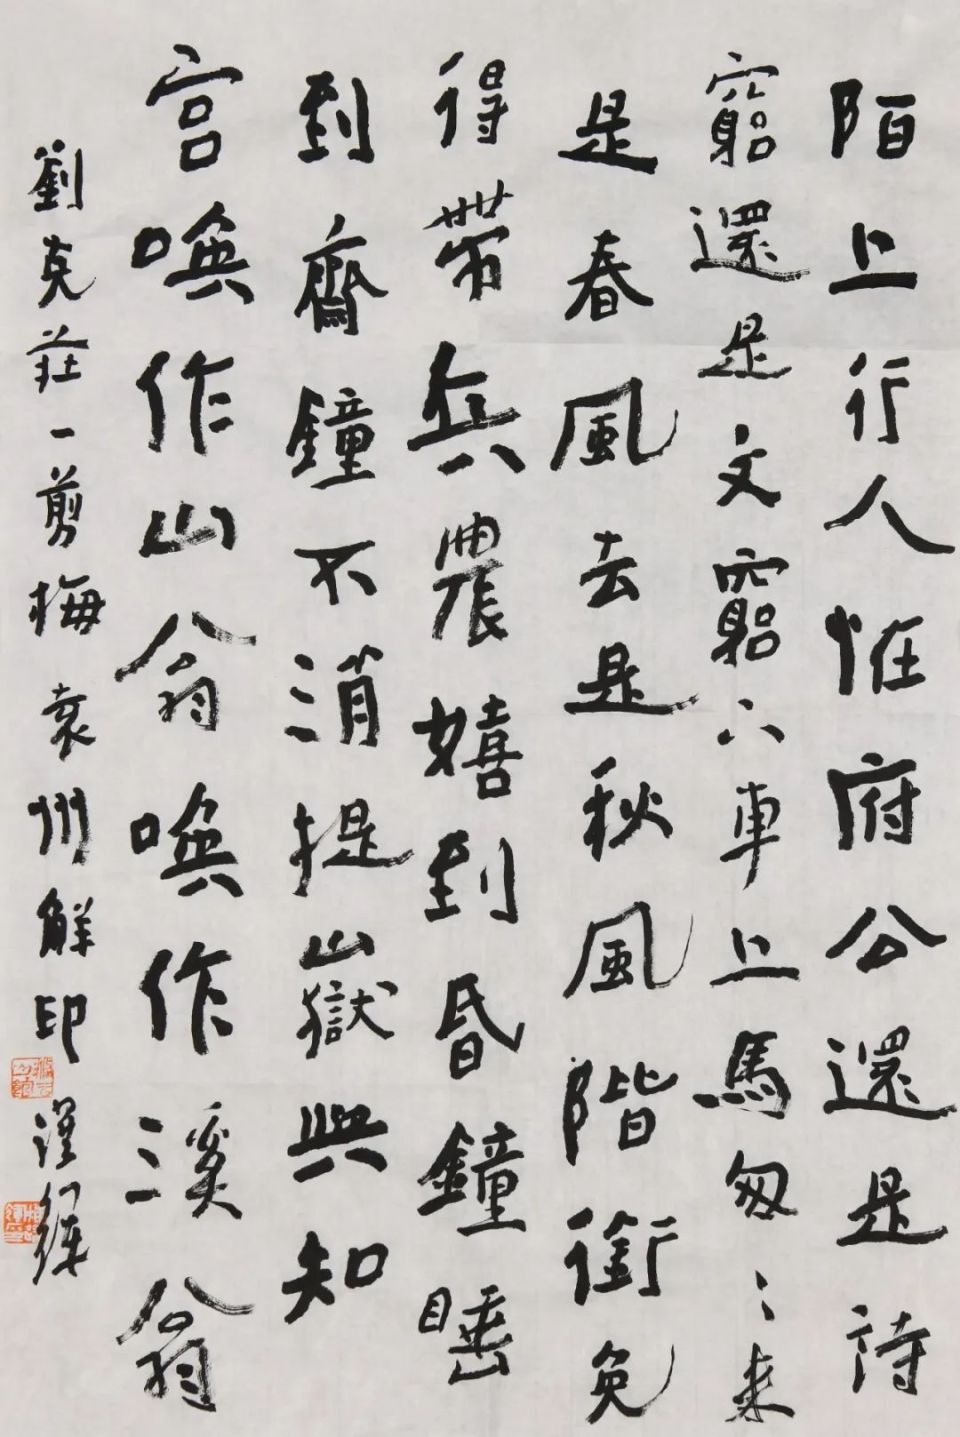 陌上行人恠府公還是詩
窮還是文窮六車上馬匆〻来
是春風去是秋風階銜免
得帶兵農嬉到昏鐘睡
到齋鐘不消提嶽與知
宫唤作山翁唤作溪翁
劉克莊一剪梅袁州解印 謹輝